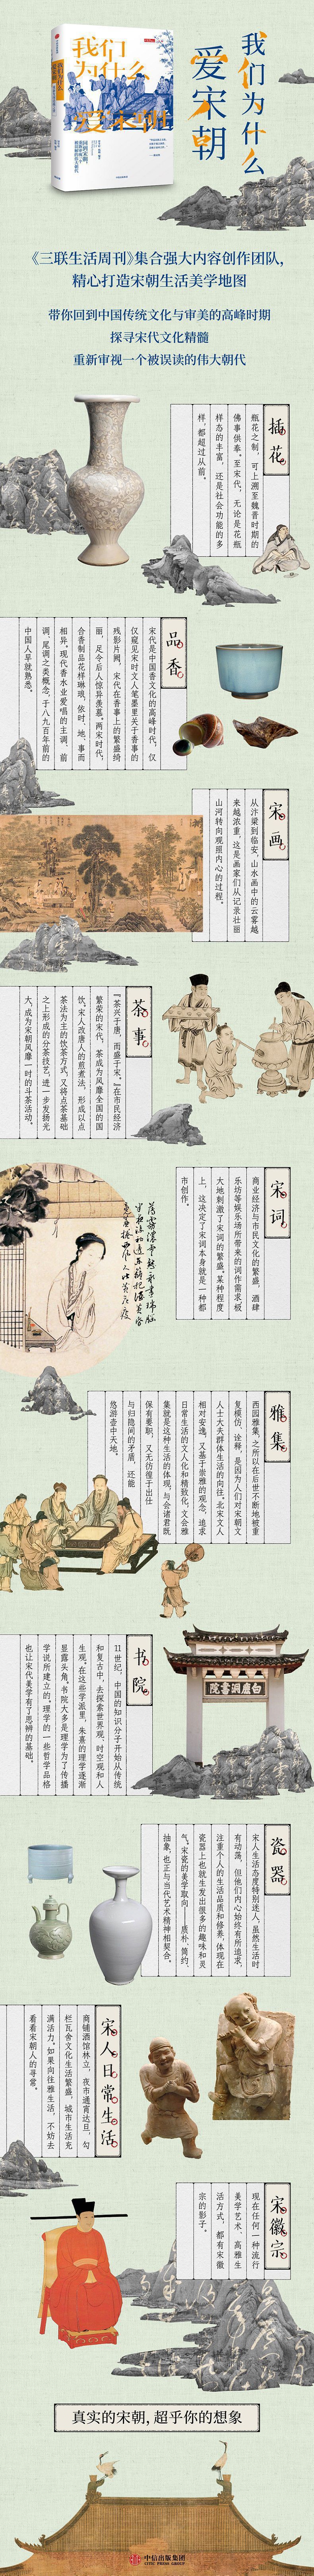 我们为什么
爱宋朝
我们
为什么
爱宋朝
《三联生活周刊》集合强大内容创作团队，
精心打造宋朝生活美学地图
带你回到中国传统文化与审美的高峰时期
探寻宋代文化精髓
重新审视一个被误读的伟大朝代
插花
瓶花之制，可上溯至魏晋时期的
佛事供奉。至宋代，无论是花瓶
样态的丰富，还是社会功能的多
样，都超过从前。
品香
宋代是中国香文化的高峰时代，仅
仅窥见宋时文人笔墨里关于香事的
残影片阙，宋代在香事上的繁盛绮
丽，足令后人惊异羡慕。两宋时代，
合香制品花样琳琅，依时、地、事而
相异。现代香水业爱唱的主调、前
调、尾调之类概念，于八九百年前的
中国人早就熟悉。
宋画
从汴梁到临安，山水画中的云雾越
来越浓重，这是画家们从记录壮丽
山河转向观照内心的过程。
茶事
“茶兴于唐，而盛于宋。”在市民经济
繁荣的宋代，茶成为风靡全国的国
饮。宋人改唐人的煎煮法，形成以点
茶法为主的饮茶方式，又将点茶基础
之上形成的分茶技艺，进一步发扬光
大，成为宋朝风靡一时的斗茶活动。
宋词
商业经济与市民文化的繁盛，酒肆
乐坊等娱乐场所带来的词作需求极
大地刺激了宋词的繁盛。某种程度
上，这决定了宋词本身就是一种都
市创作。
雅集
西园雅集，之所以在后世不断地被重
复模仿、诠释，是因为人们对宋朝文
人士大夫群体生活的向往。北宋文人
相对安逸，又基于崇雅的观念，追求
日常生活的文人化和精致化，文会雅
集就是这种生活的体现。与会诸君既
保有要职，又无彷徨于出仕
与归隐间的矛盾，还能
悠游壶中天地。
书院
11世纪，中国的知识分子开始从传统
和复古中，去探索世界观、时空观和人
生观。在这些学派里，朱熹的理学逐渐
显露头角。书院大多是理学为了传播
学说所建立的。理学的一些哲学品格
也让宋代美学有了思辨的基础。
院書洞鹿白
瓷器
宋人生活态度特别迷人。虽然生活时
有动荡，但他们内心始终有所追求，
注重个人的生活品质和修养，体现在
瓷器上也就生发出很多的趣味和灵
气。宋瓷的美学取向——质朴、简约、
抽象，也正与当代艺术精神相契合。
宋人日常生活
商铺酒馆林立，夜市通宵达旦，勾
栏瓦舍文化生活繁盛，城市生活充
满活力。如果向往雅生活，不妨去
看看宋朝人的寻常。
宋徽宗
现在任何一种流行
美学艺术、高雅生
活方式，都有宋徽
宗的影子。
真实的宋朝，超乎你的想象
中信出版集团
CITIC PRESS GROUP